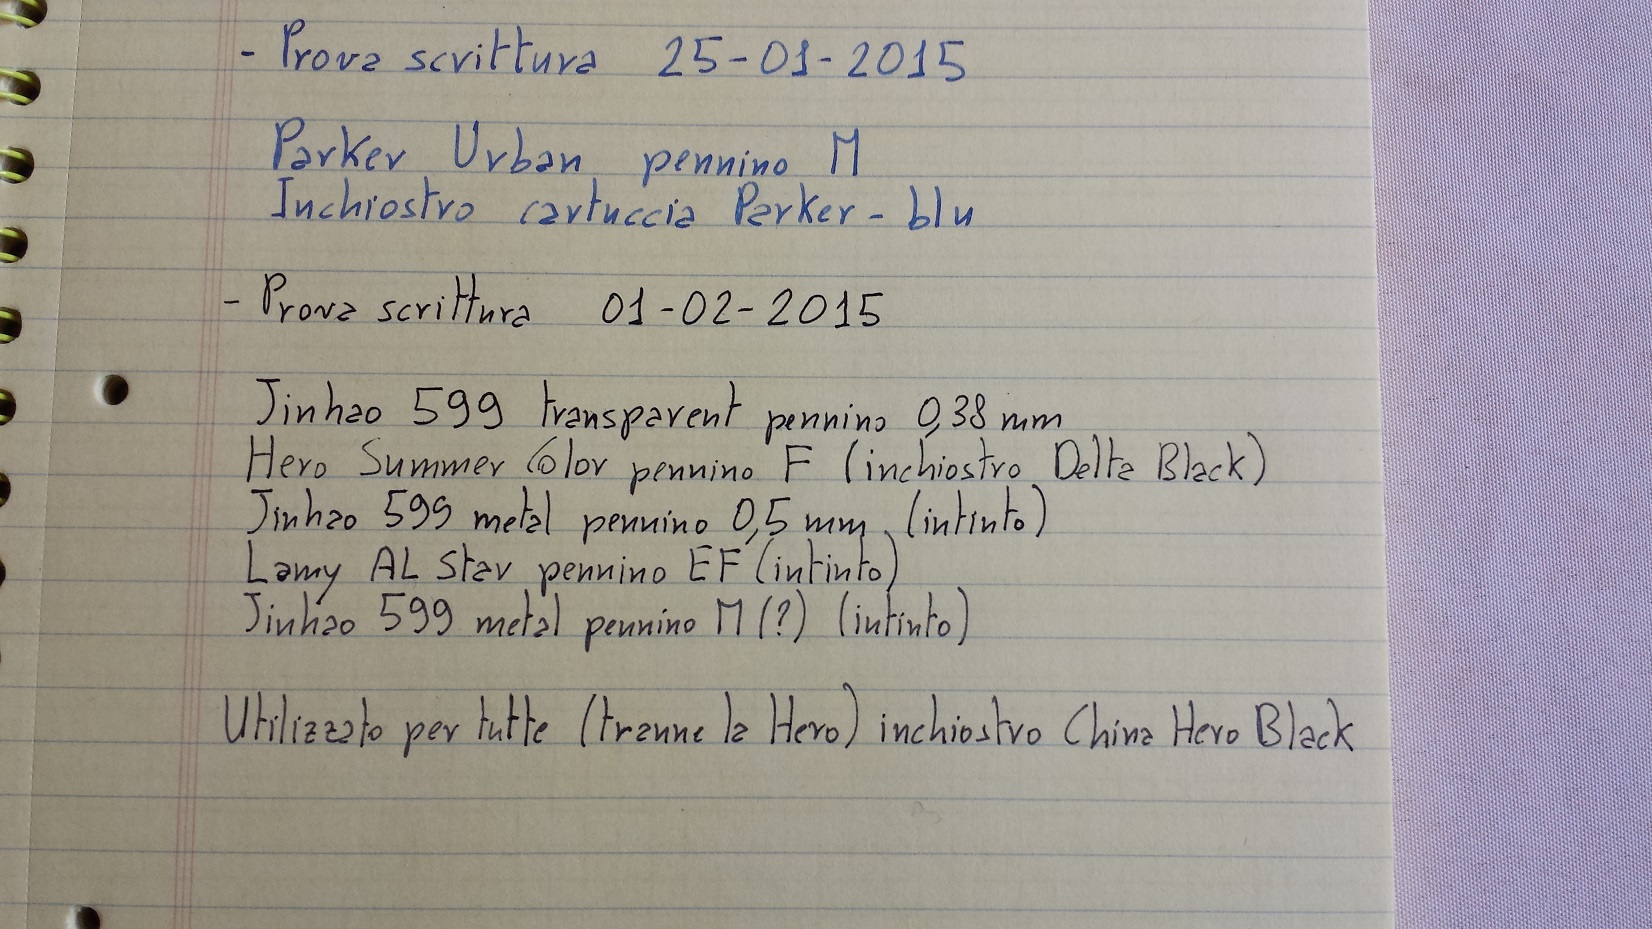 - Prova scrittura 25-01-2015
Parker Urban pennino M
Inchiostro cartuccia Parker - blu
- Prova scrittura 01-02-2015
Jinhao 599 transparent pennino 0,38 mm
Hero Summer Color pennino F (inchiostro Delta Black)
Jinhao 599 metal pennino 0,5 mm (intinto)
Lamy AL Star pennino EF (intinto)
Jinhao 599 metal pennino M (?) (intinto)
Utilizzato per tutte (tranne la Hero) inchiostro China Hero Black